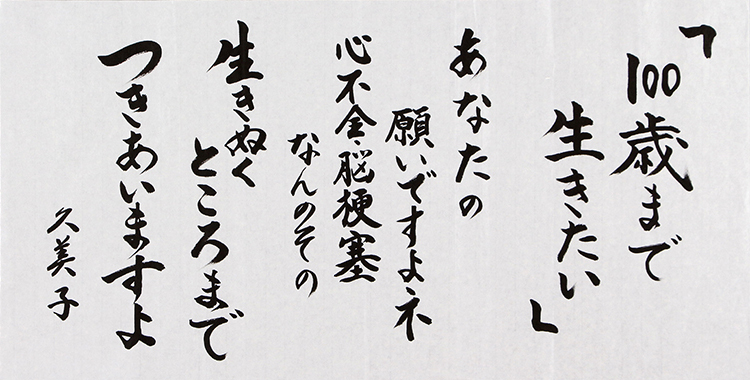 「100歳まで
生きたい」
あなたの
願いですよネ
心不全・脳梗塞
なんのその
生きぬく
ところまで
つきあいますよ
久美子